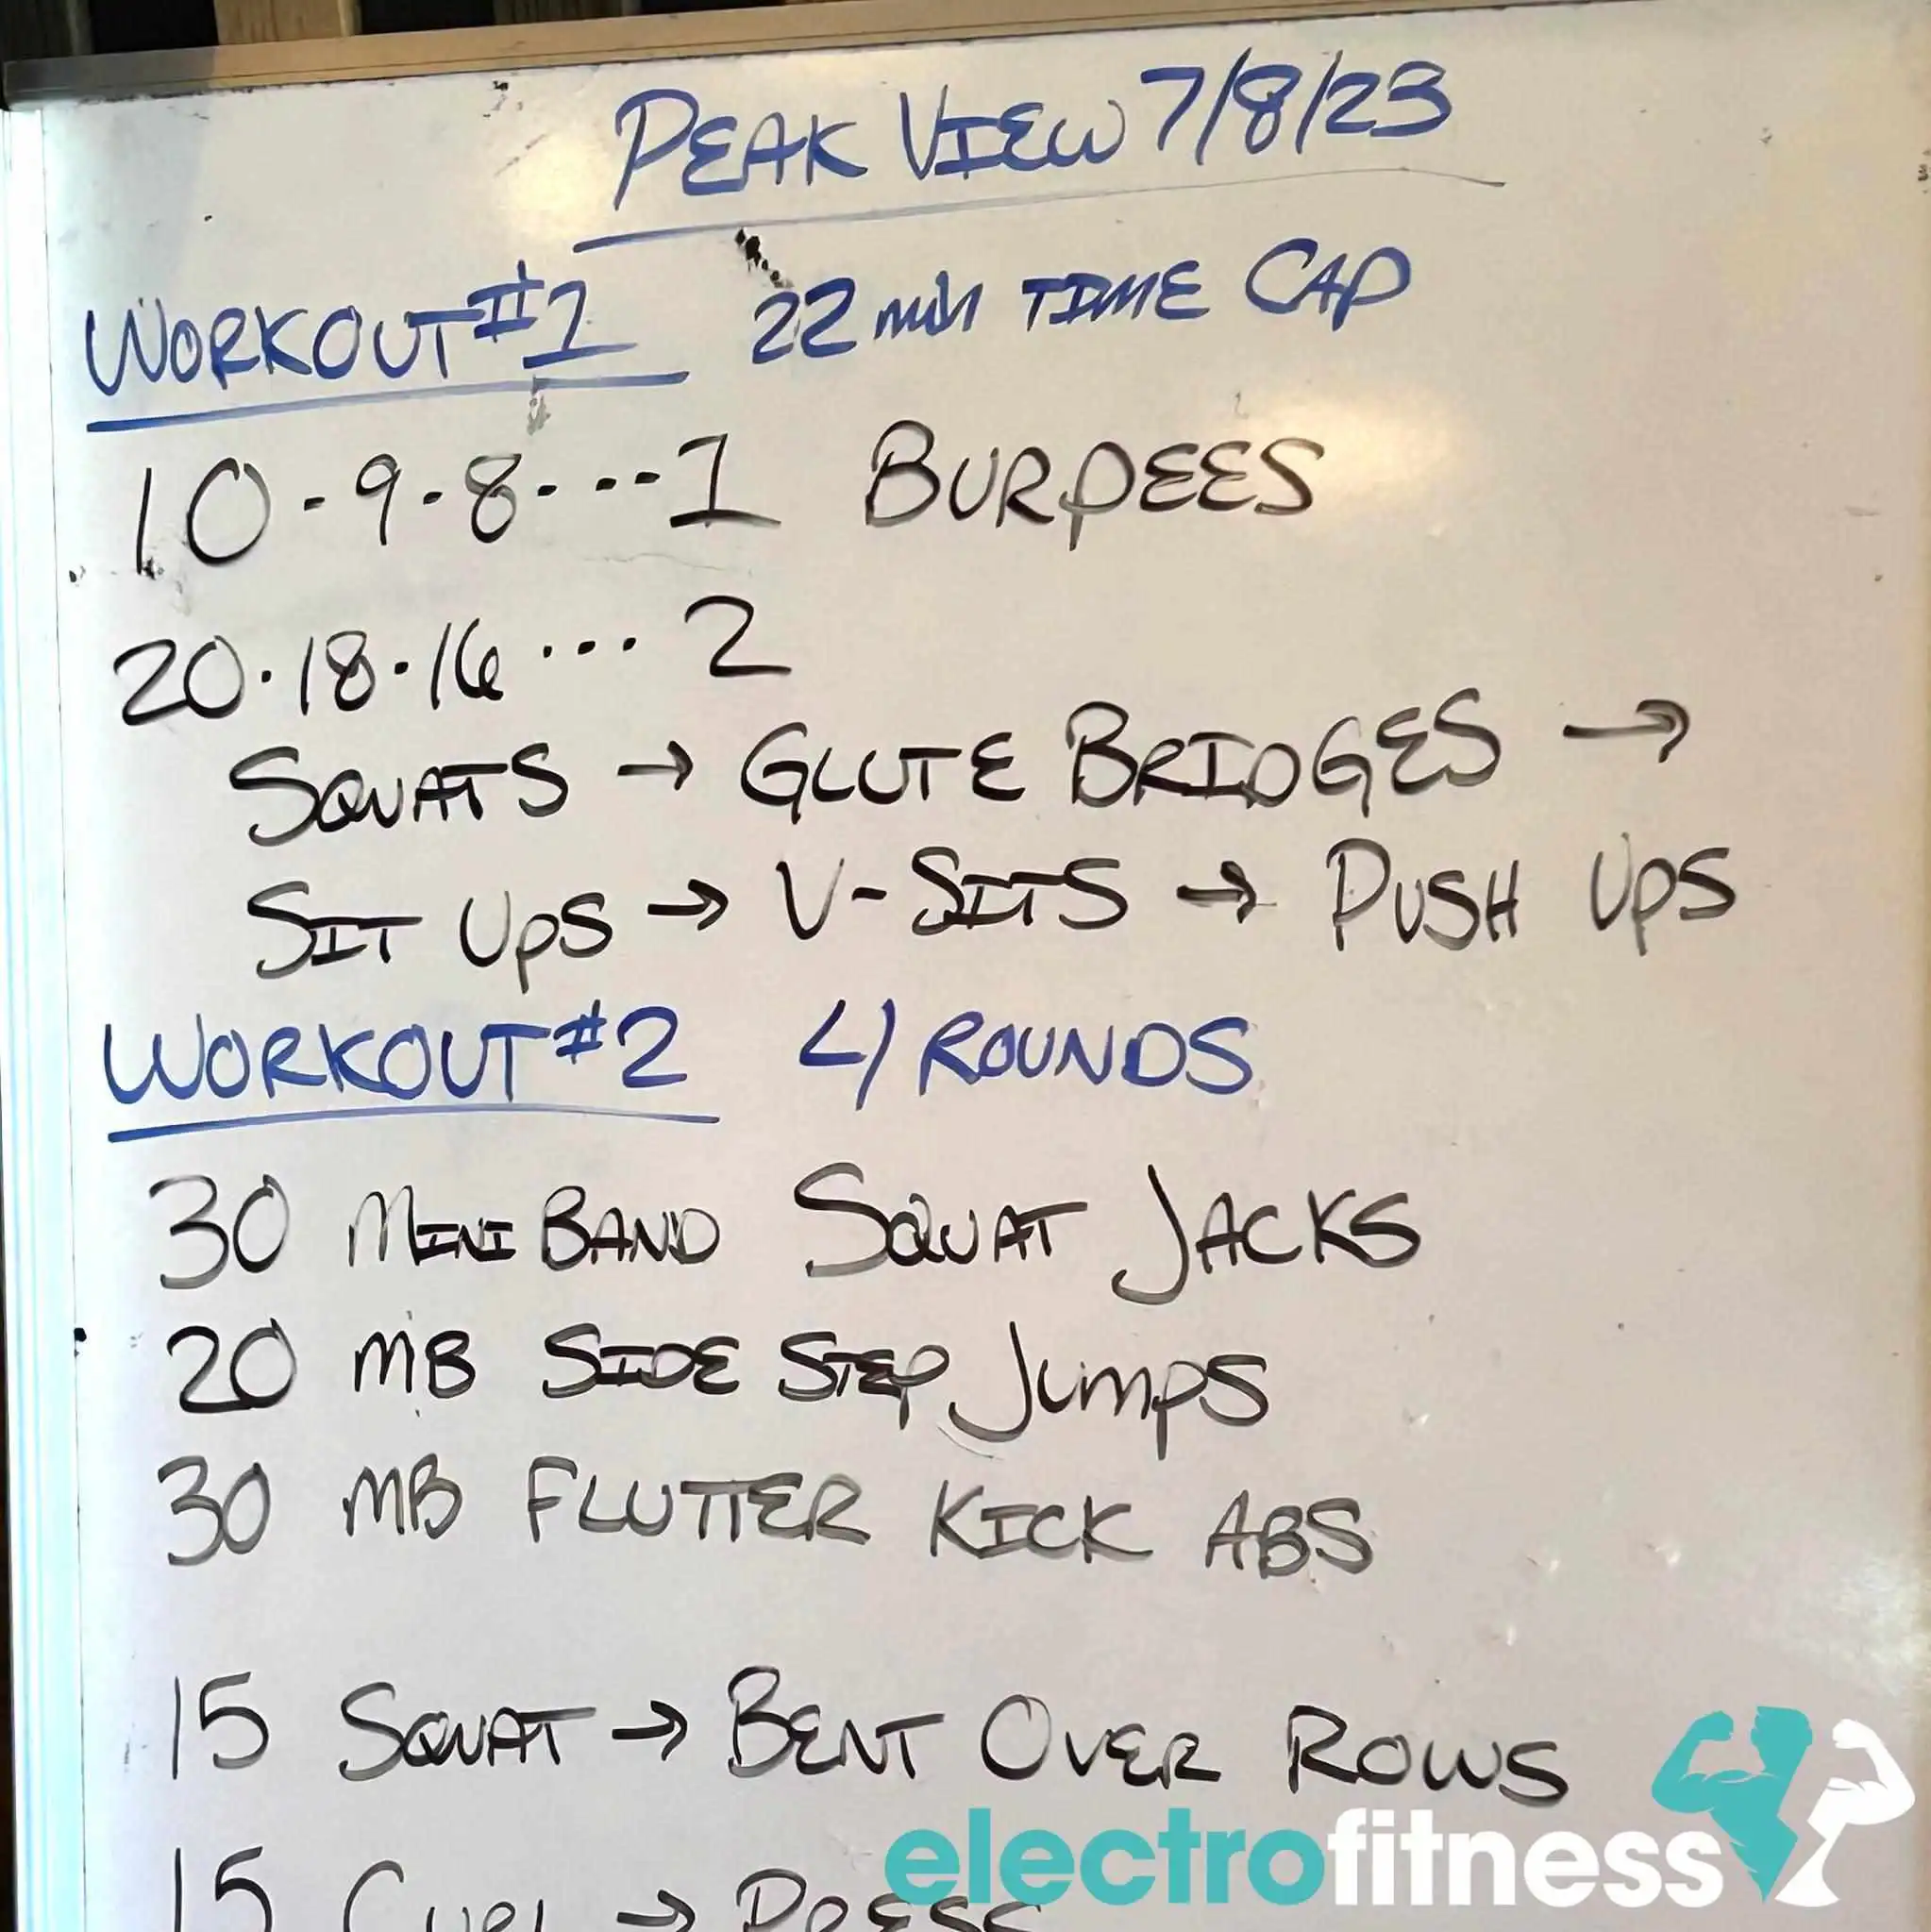 PEAK VIEW 7/8/23
WORKOUT #1 22 min TIME CAP
10-9-8----1 BURPEES
20·18·16 ··· 2
SQUATS → GLUTE BRIDGES →
SIT UPS → V-SITS → PUSH UPS
WORKOUT #2 4 ROUNDS
30 MINI BAND SQUAT JACKS
20 MB SIDE STEP JUMPS
30 MB FLUTTER KICK ABS
15 SQUAT → BENT OVER ROWS
15 CURL → PRESS
electrofitness